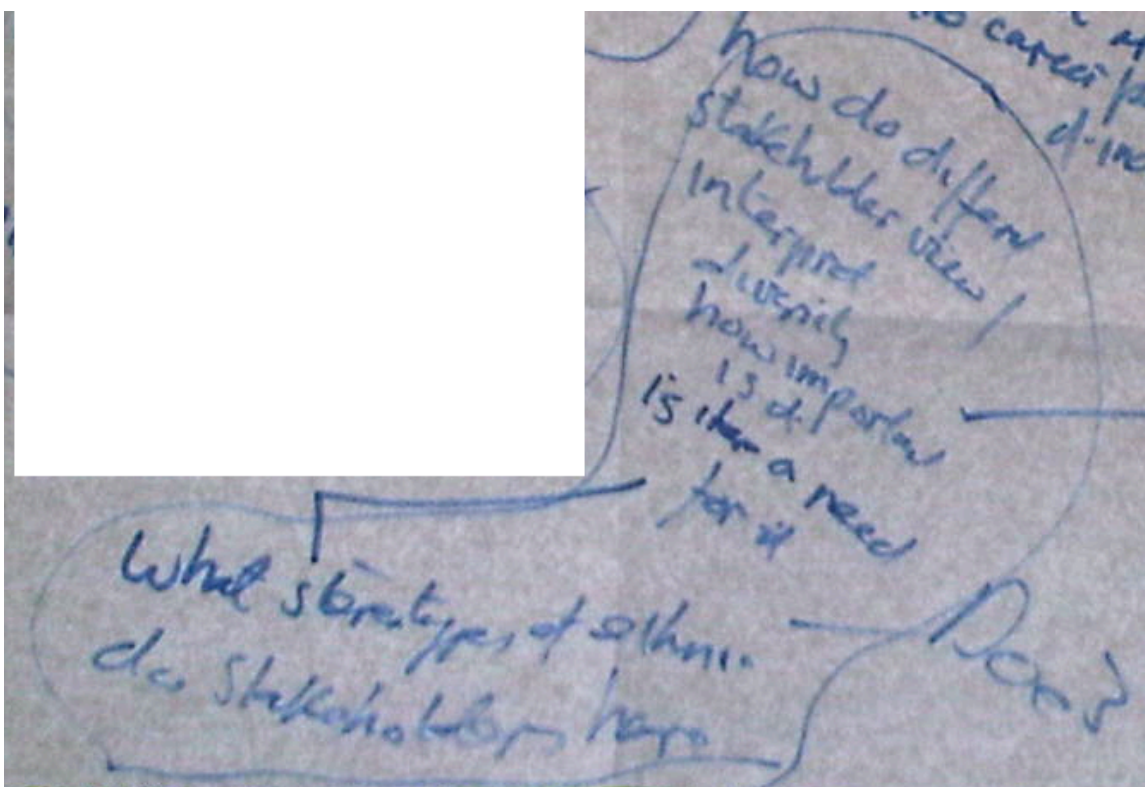 career
how do differn
stakeholder view /
Interpret
diversity
how importan
is d.
is ther a need
for it
What stereotypes of ethnic
do stakeholders have